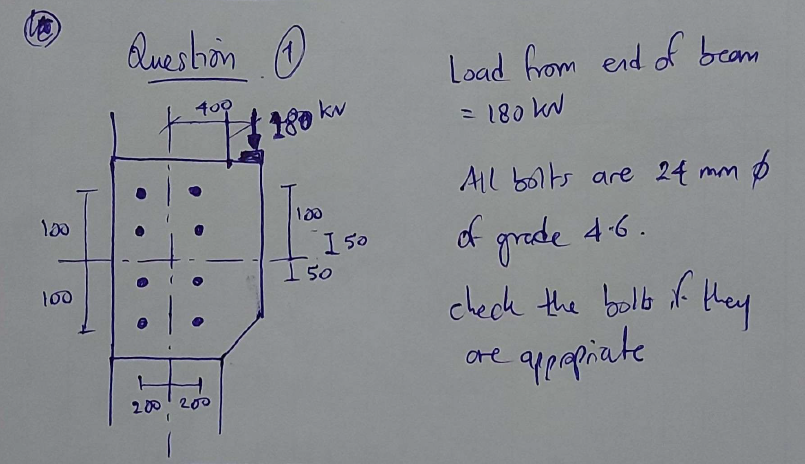 Question ①
400
180 kN
100
100
50
50
100
200
200
Load from end of beam
= 180 kN
All bolts are 24 mm φ
of grade 4.6.
check the bolts if they
are appropriate